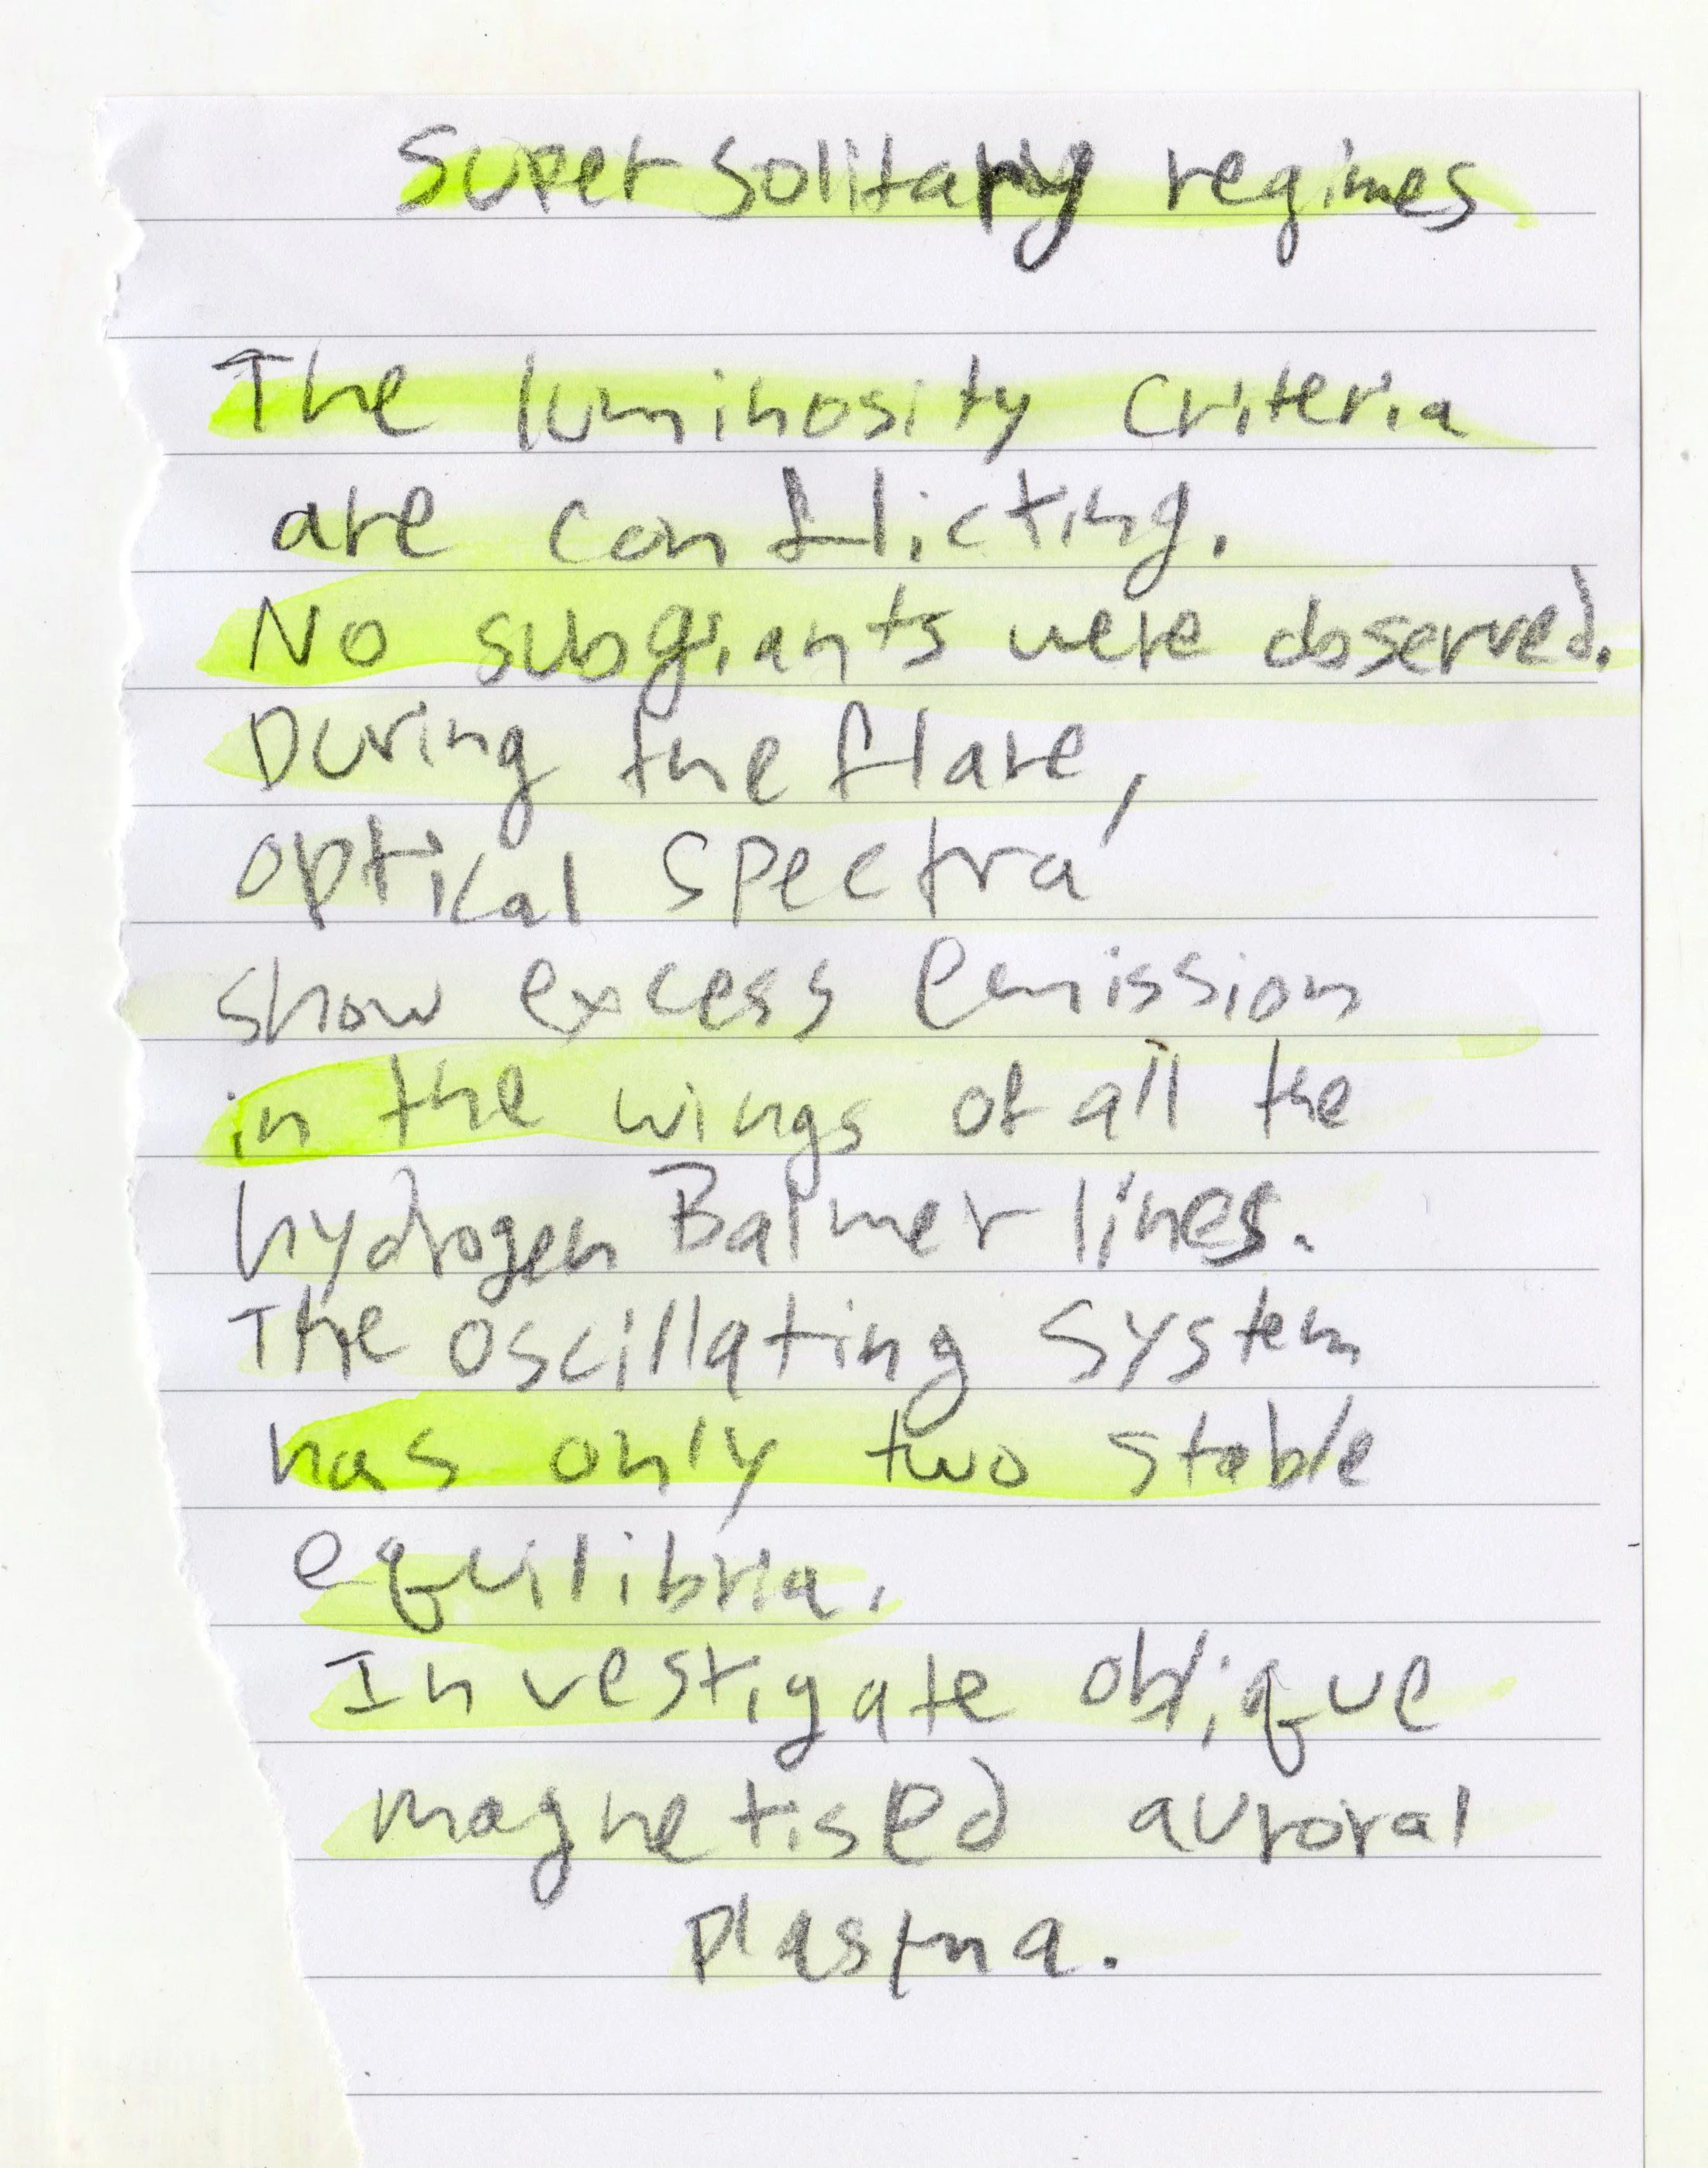 Super solitary regimes
The luminosity criteria
are conflicting.
No subgiants were observed.
During the flare,
optical spectra
show excess emission
in the wings of all the
hydrogen Balmer lines.
The oscillating system
has only two stable
equilibria.
Investigate oblique
magnetised auroral
plasma.